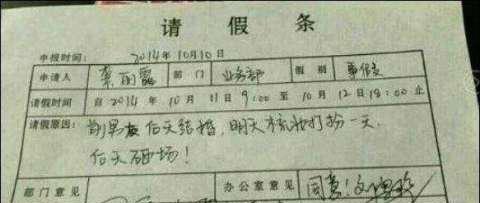 请假条
申报时间: 2014年10月10日
申请人 丽霞 部门 业务部 假别 事假
请假时间 自2014年10月11日9:00至10月12日18:00止
请假原因: 前男友后天结婚,明天梳妆打扮一天,
后天砸场!
部门意见 办公室意见 同意!